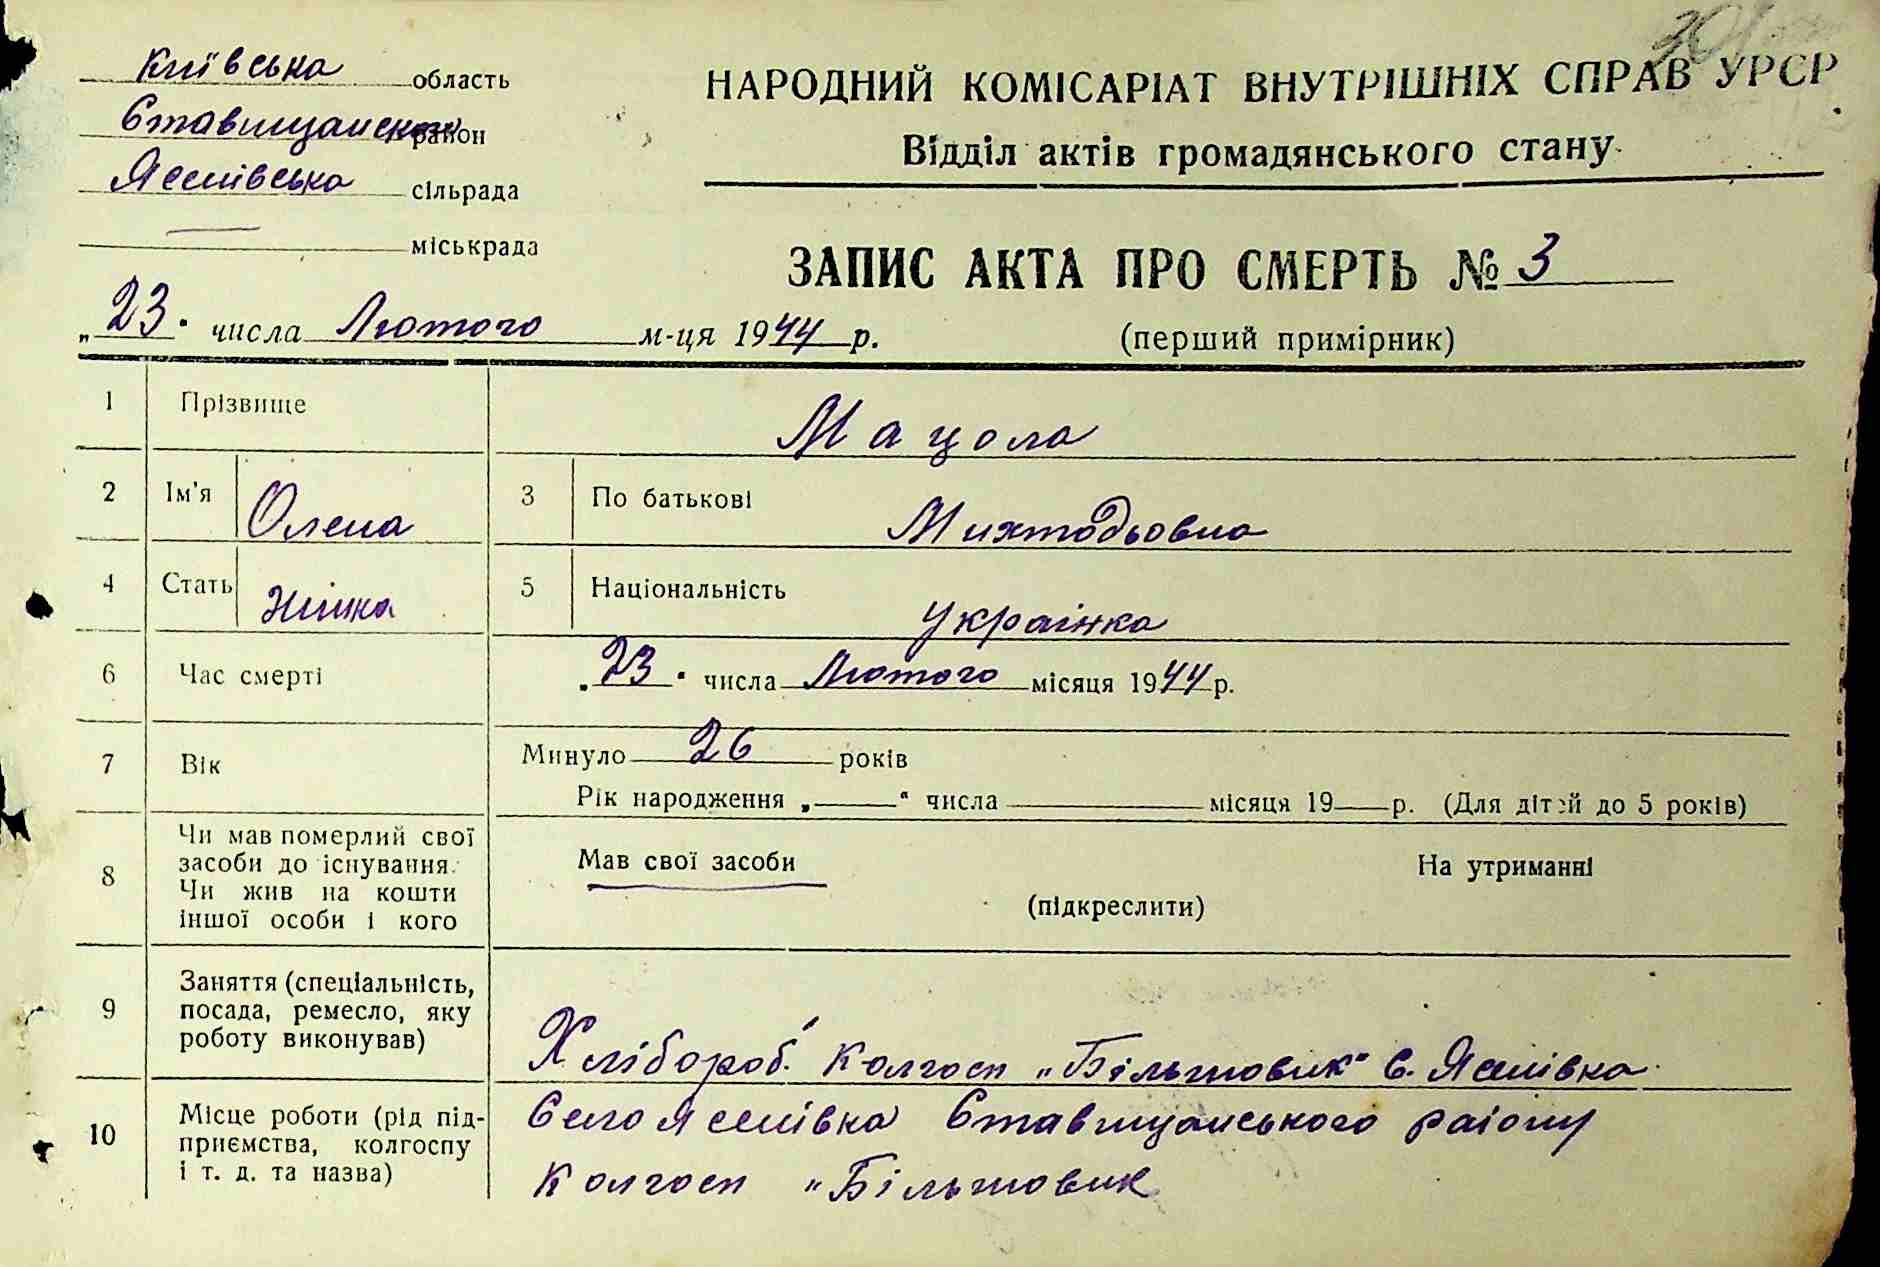 Київська область
Ставищанський район
Яснівська сільрада
міськрада
НАРОДНИЙ КОМІСАРІАТ ВНУТРІШНІХ СПРАВ УРСР
Відділ актів громадянського стану
ЗАПИС АКТА ПРО СМЕРТЬ № 3
„23" числа Лютого м-ця 1944 р.
(перший примірник)
1 Прізвище Мацола
2 Ім'я Олена 3 По батькові Михтодьовна
4 Стать Жінка 5 Національність Українка
6 Час смерті „23" числа Лютого місяця 1944 р.
7 Вік Минуло 26 років
Рік народження „ “ числа місяця 19 р. (Для дітей до 5 років)
8 Чи мав померлий свої
засоби до існування.
Чи жив на кошти
іншої особи і кого
Мав свої засоби На утриманні
(підкреслити)
9 Заняття (спеціальність,
посада, ремесло, яку
роботу виконував)
Хлібороб. Колгосп „Більшовик" С. Яснівка
10 Місце роботи (рід під-
приємства, колгоспу
і т. д. та назва)
Село Яснівка Ставищанського району
Колгосп „Більшовик